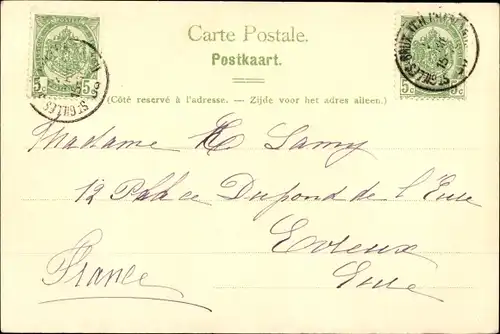 Carte Postale.
Postkaart.
(Côté reservé à l'adresse. — Zijde voor het adres alleen.)
5c 5c
5c 5c
Madame Lamy
12 Place Dupond de l'Eure
Evreux
Eure
France